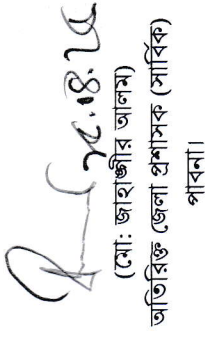 (মো: জাহাঙ্গীর আলম)
অতিরিক্ত জেলা প্রশাসক (সার্বিক)
পাবনা।